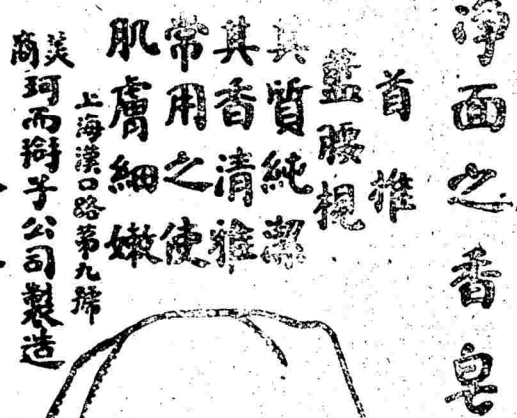 淨面之香皂
首推
藍腰梘
其質純潔
其香清雅
常用之使
肌膚細嫩
上海漢口路第九號
美商珂而搿子公司製造